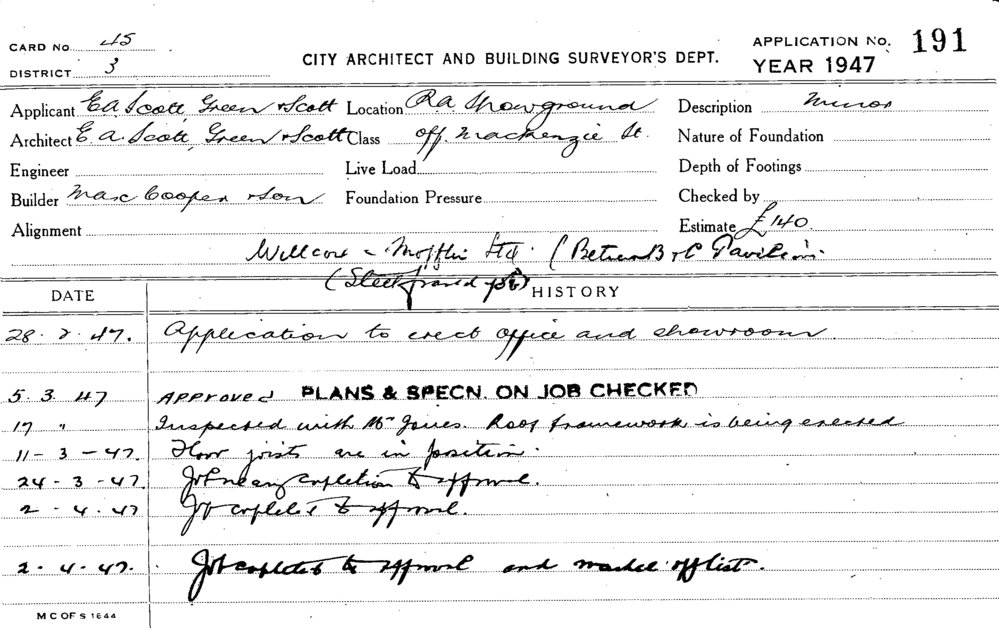 CARD No. 45
DISTRICT 3
CITY ARCHITECT AND BUILDING SURVEYOR'S DEPT.
APPLICATION No. 191
YEAR 1947
Applicant E A Scott, Green & Scott Location R A Showground Description Minor
Architect E. A. Scott, Green & Scott Class off Mackenzie St. Nature of Foundation
Engineer Live Load Depth of Footings
Builder Max Cooper & Son Foundation Pressure Checked by
Alignment Estimate £140
Willcox & Mofflin Ltd. (Between B & C Pavilion.
(Steel framed job)
DATE HISTORY
28. 2. 47. Application to erect office and showroom
5. 3. 47 APPROVED PLANS & SPECN. ON JOB CHECKED
17 " Inspected with Mr Jones. Roof framework is being erected
11 - 3 - 47. Floor joists are in position.
24 - 3 - 47. Job nearing completion to approval.
2 - 4. 47 Job completed to approval.
2. 4. 47. Job completed to approval and marked off list.
M C OF S 1644